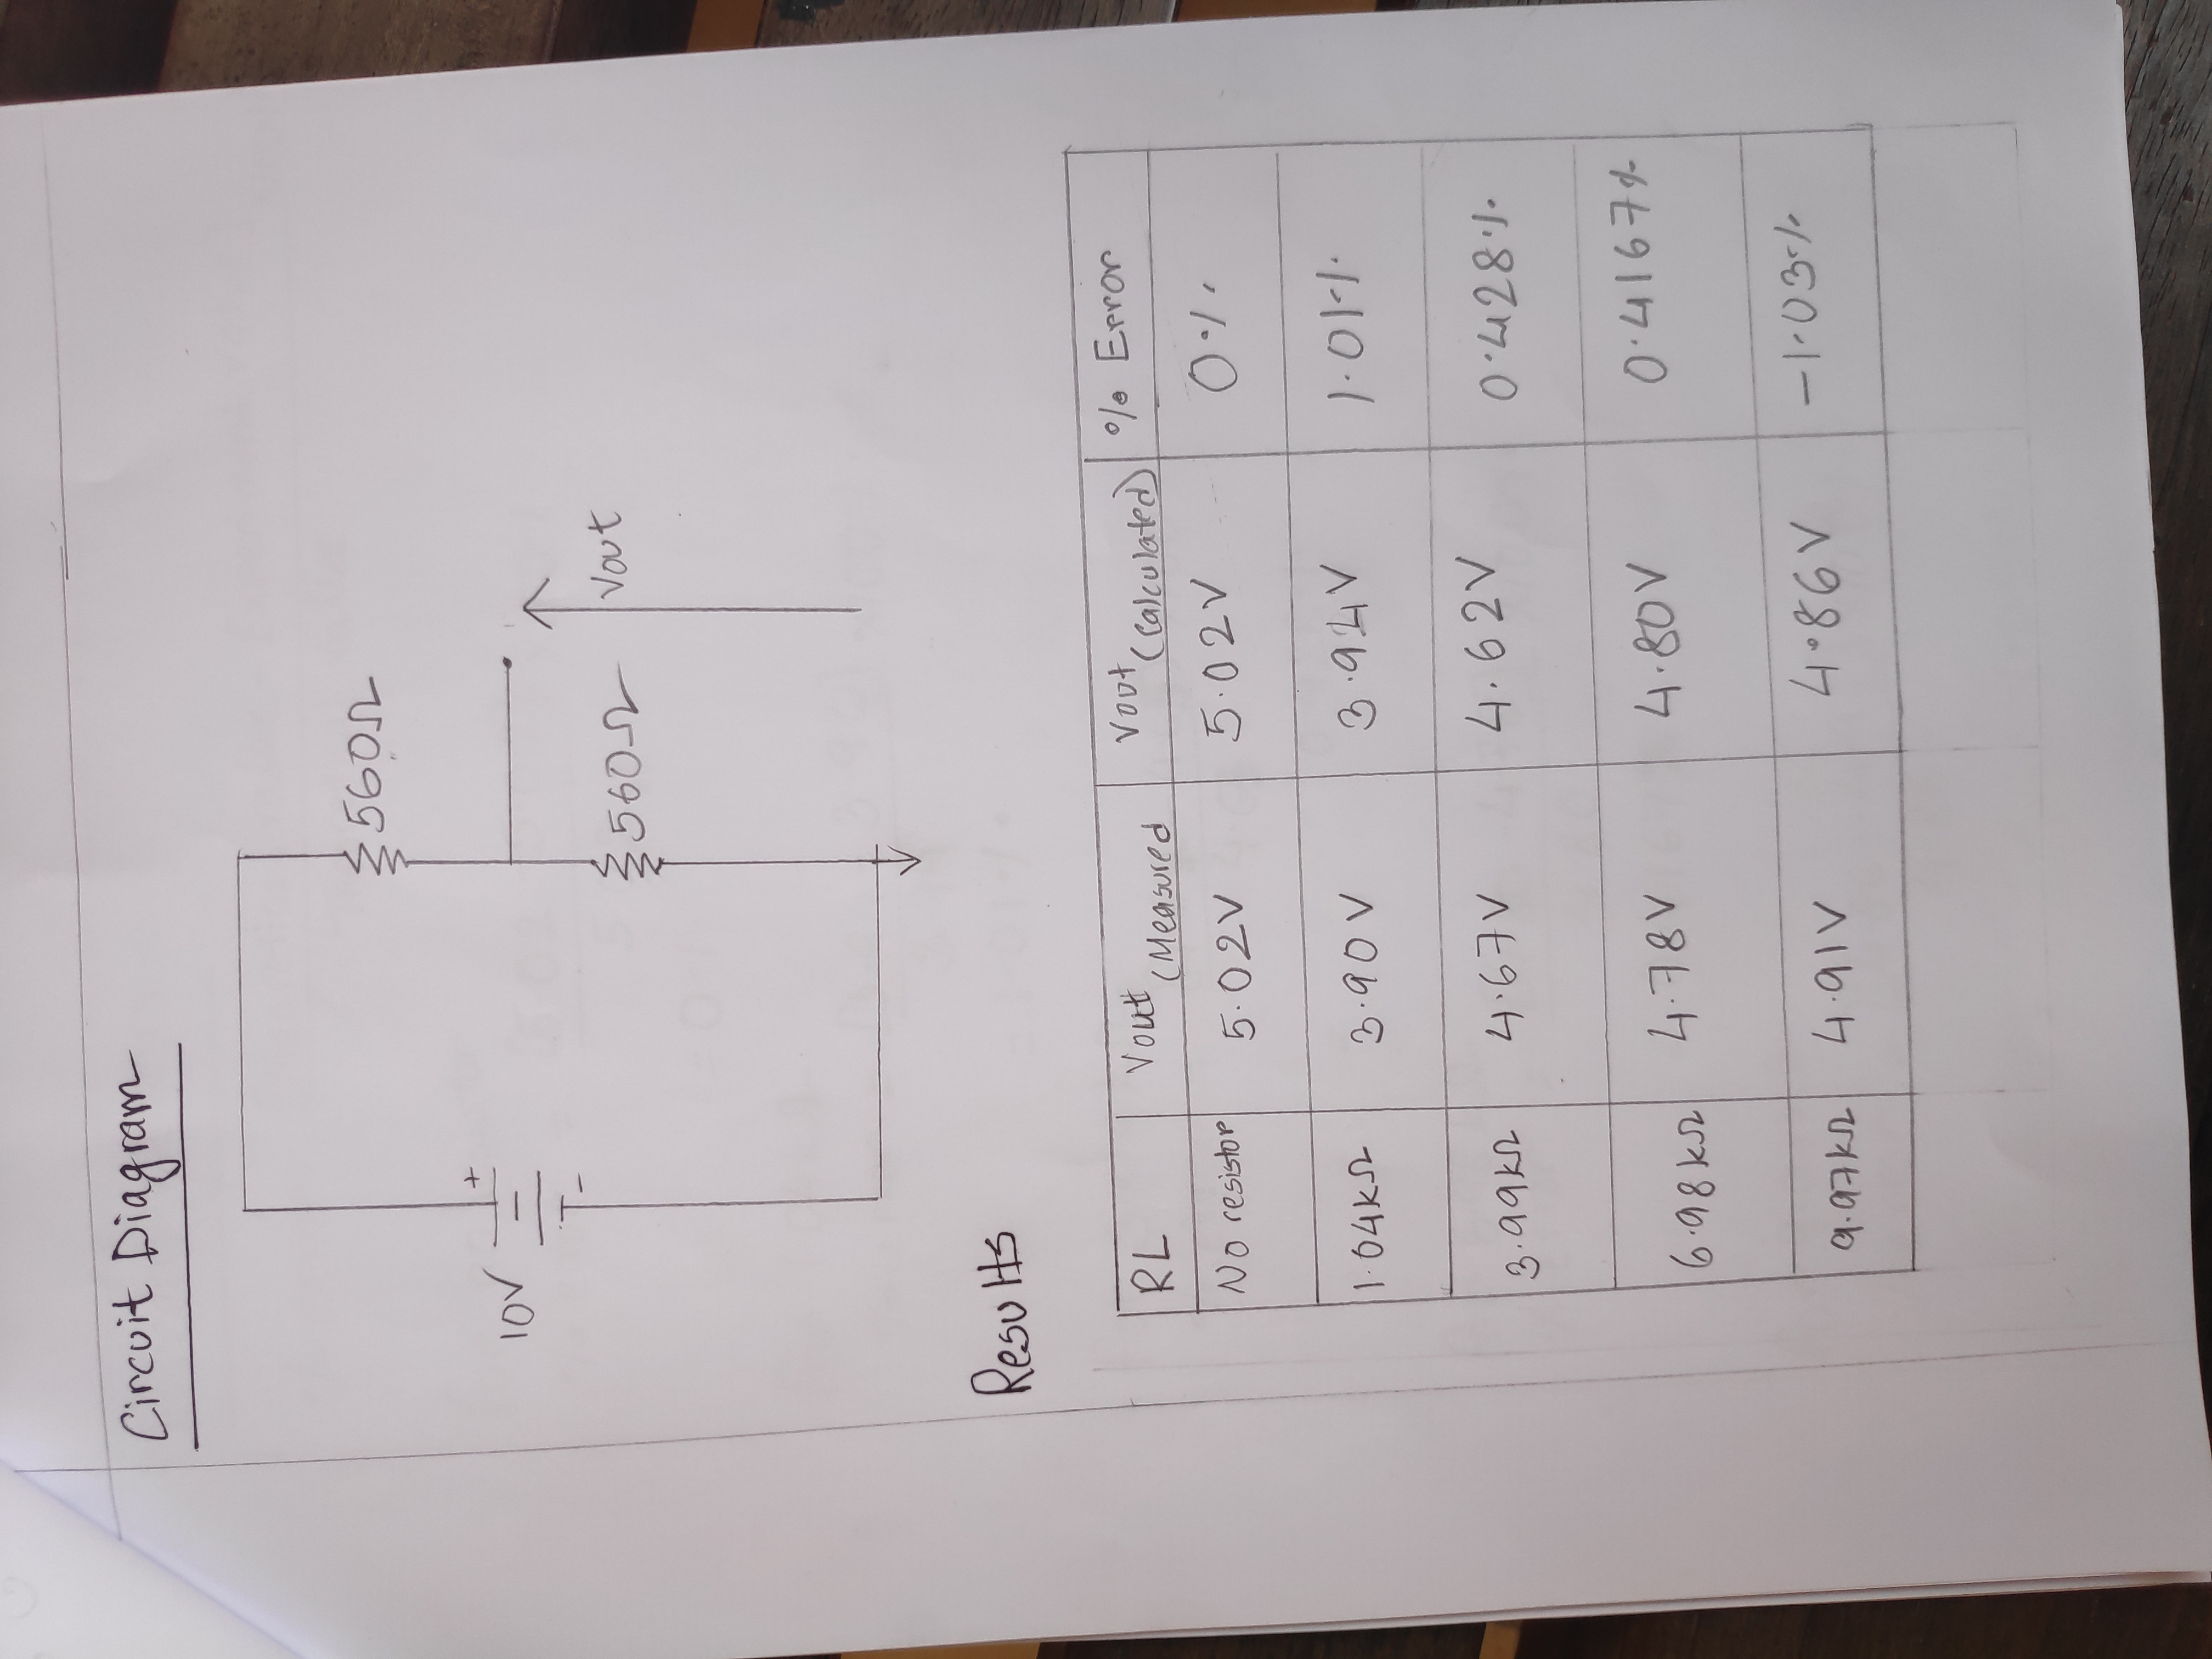 Circuit Diagram
560Ω
+
10V
-
560Ω
Vout
Results
RL
Vout (Measured
Vout (Calculated)
% Error
No resistor
5.02V
5.02V
0%
1.04kΩ
3.90V
3.94V
1.01%
3.99kΩ
4.67V
4.62V
0.428%
6.98kΩ
4.78V
4.80V
0.4167%
9.97kΩ
4.91V
4.86V
-1.03%